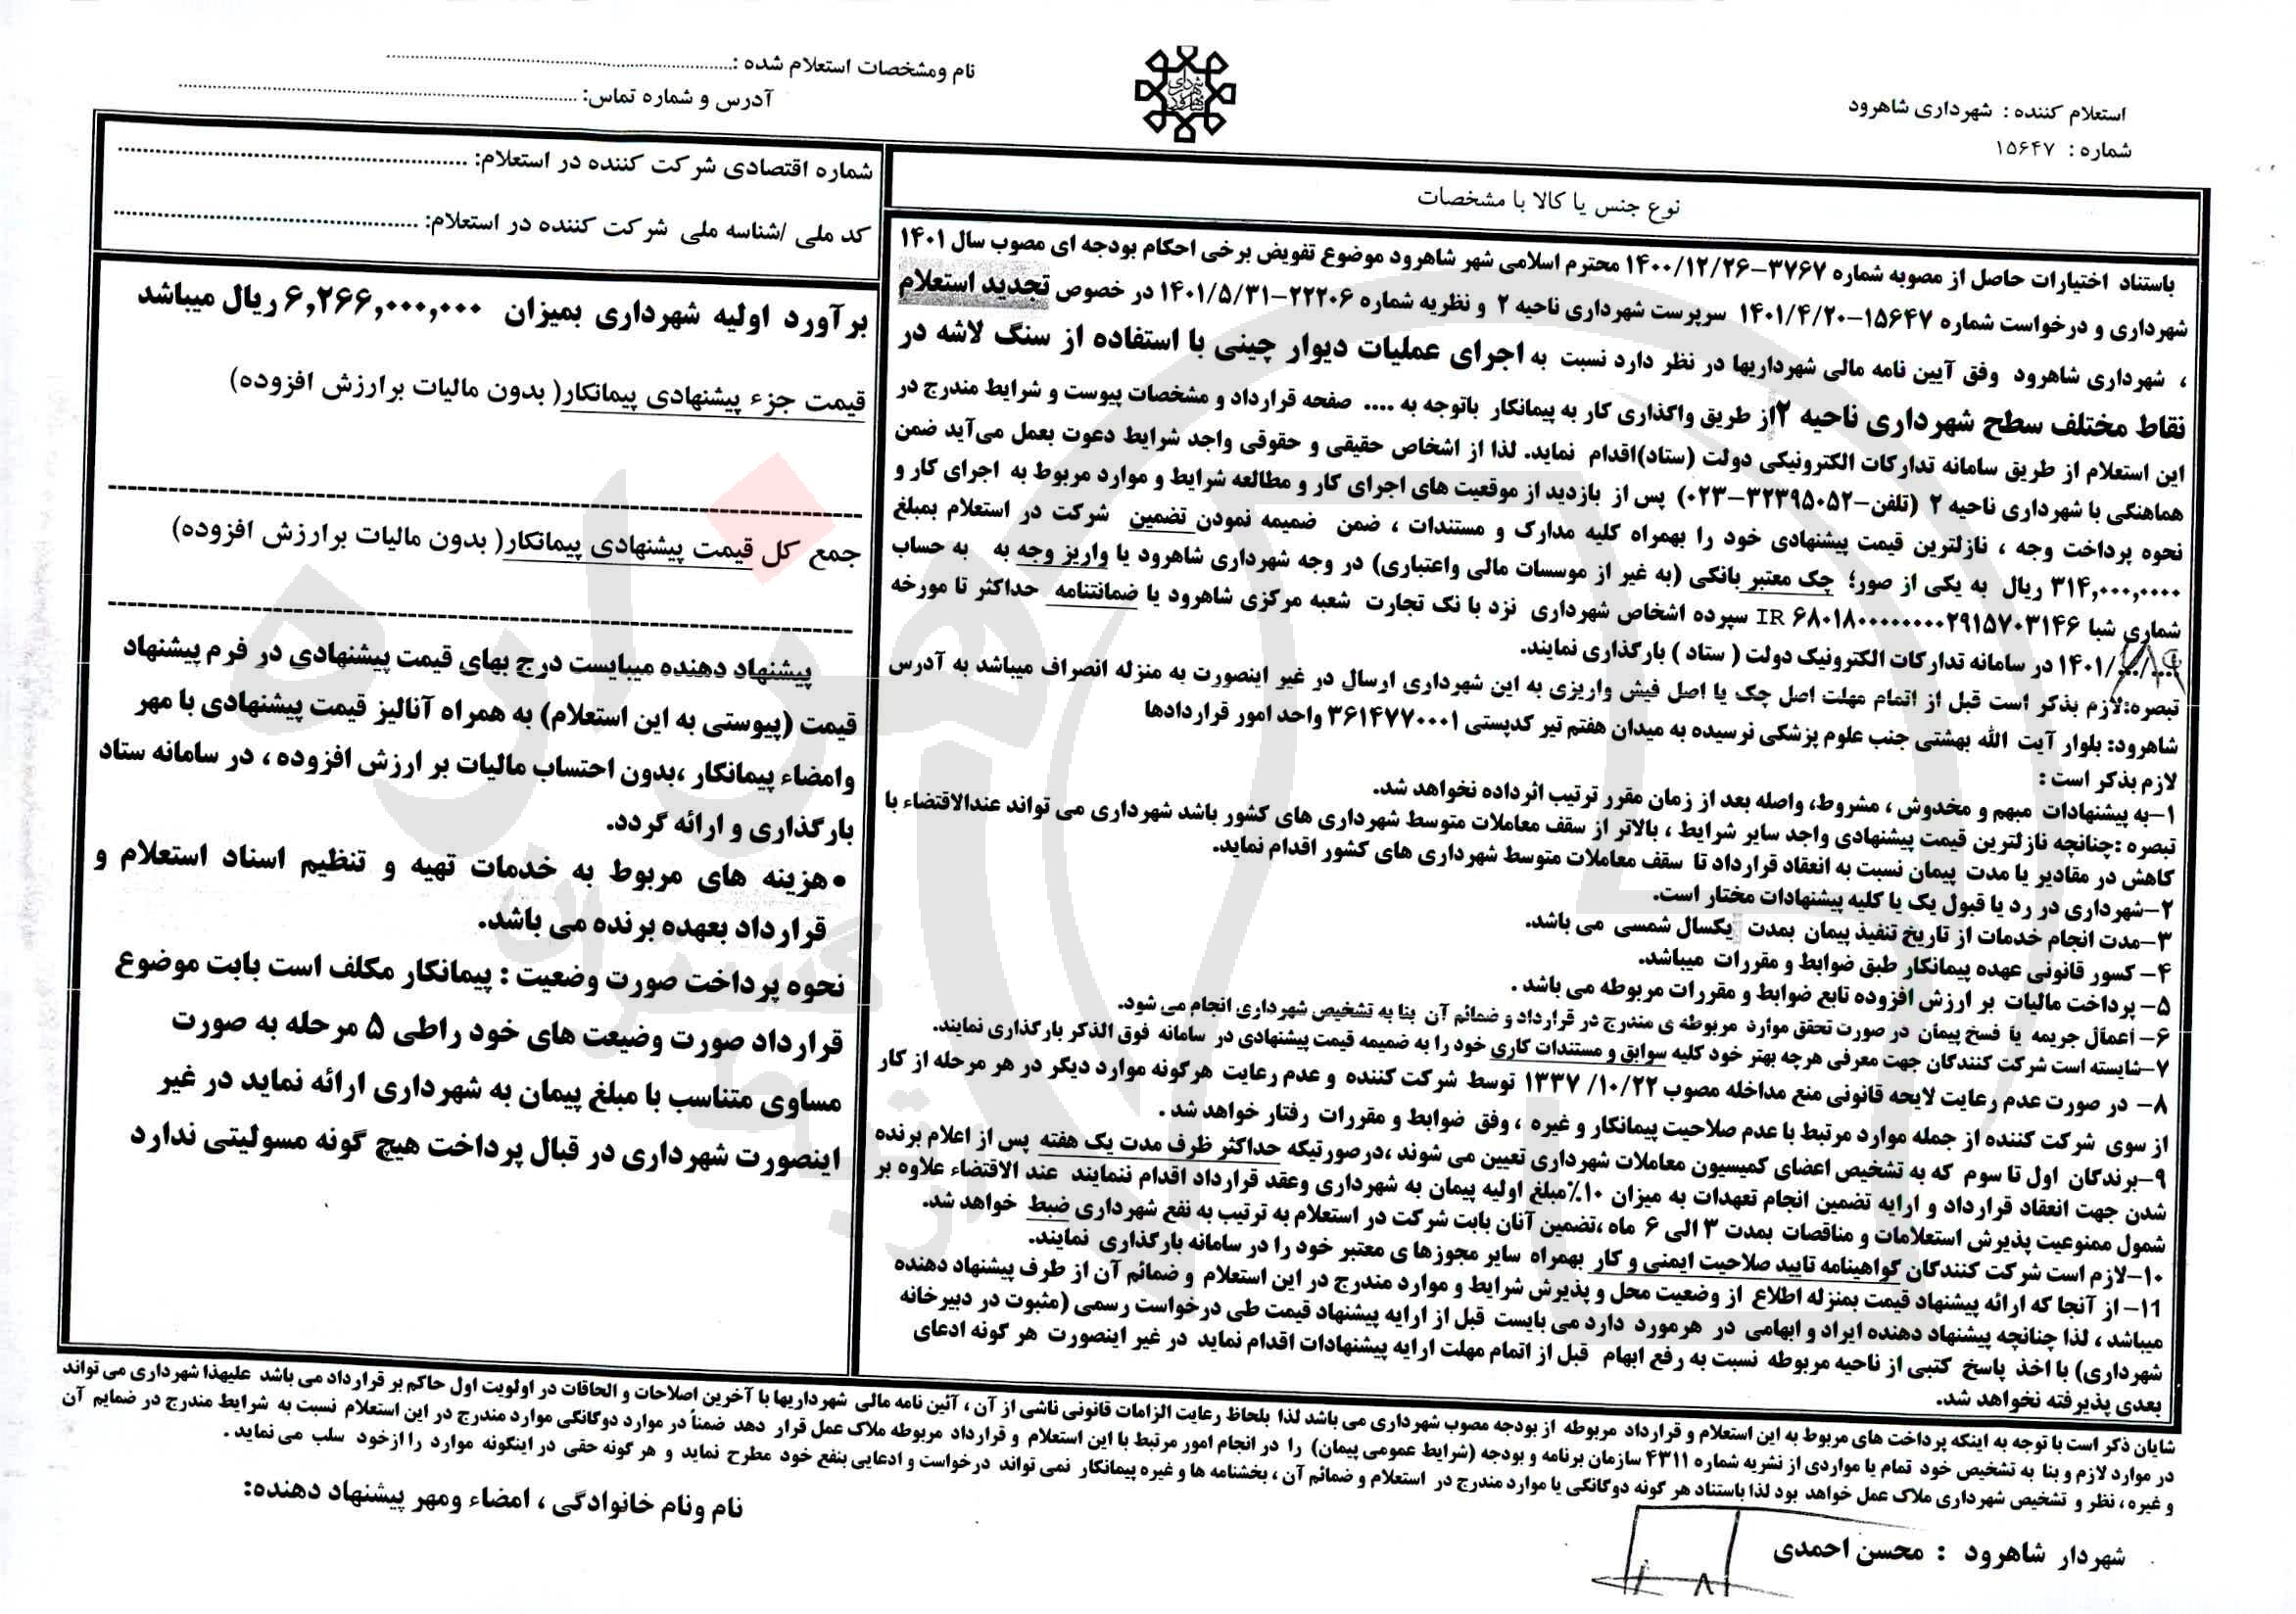 استعلام کننده : شهرداری شاهرود
شماره : ۱۵۶۴۷
نام ومشخصات استعلام شده :
آدرس و شماره تماس:
نوع جنس یا کالا با مشخصات
باستناد اختیارات حاصل از مصوبه شماره ۳۷۶۷-۱۴۰۰/۱۲/۲۶ محترم اسلامی شهر شاهرود موضوع تفویض برخی احکام بودجه ای مصوب سال ۱۴۰۱
شهرداری و درخواست شماره ۱۵۶۴۷-۱۴۰۱/۴/۲۰ سرپرست شهرداری ناحیه ۲ و نظریه شماره ۲۲۲۰۶-۱۴۰۱/۵/۳۱ در خصوص تجدید استعلام
، شهرداری شاهرود وفق آیین نامه مالی شهرداریها در نظر دارد نسبت به اجرای عملیات دیوار چینی با استفاده از سنگ لاشه در
نقاط مختلف سطح شهرداری ناحیه ۲ از طریق واگذاری کار به پیمانکار باتوجه به .... صفحه قرارداد و مشخصات پیوست و شرایط مندرج در
این استعلام از طریق سامانه تدارکات الکترونیکی دولت (ستاد)اقدام نماید. لذا از اشخاص حقیقی و حقوقی واجد شرایط دعوت بعمل می‌آید ضمن
هماهنگی با شهرداری ناحیه ۲ (تلفن-۳۲۳۹۵۰۵۲-۰۲۳) پس از بازدید از موقعیت های اجرای کار و مطالعه شرایط و موارد مربوط به اجرای کار و
نحوه پرداخت وجه ، نازلترین قیمت پیشنهادی خود را بهمراه کلیه مدارک و مستندات ، ضمن ضمیمه نمودن تضمین شرکت در استعلام بمبلغ
۳۱۴,۰۰۰,۰۰۰۰ ریال به یکی از صور؛ چک معتبر بانکی (به غیر از موسسات مالی واعتباری) در وجه شهرداری شاهرود یا واریز وجه به به حساب
شماری شبا IR ۶۸۰۱۸۰۰۰۰۰۰۰۰۰۲۹۱۵۷۰۳۱۴۶ سپرده اشخاص شهرداری نزد با نک تجارت شعبه مرکزی شاهرود یا ضمانتنامه حداکثر تا مورخه
۱۴۰۱/ در سامانه تدارکات الکترونیک دولت ( ستاد ) بارگذاری نمایند.
تبصره:لازم بذکر است قبل از اتمام مهلت اصل چک یا اصل فیش واریزی به این شهرداری ارسال در غیر اینصورت به منزله انصراف میباشد به آدرس
شاهرود: بلوار آیت الله بهشتی جنب علوم پزشکی نرسیده به میدان هفتم تیر کدپستی ۳۶۱۴۷۷۰۰۰۱ واحد امور قراردادها
لازم بذکر است :
۱-به پیشنهادات مبهم و مخدوش ، مشروط، واصله بعد از زمان مقرر ترتیب اثرداده نخواهد شد.
تبصره :چنانچه نازلترین قیمت پیشنهادی واجد سایر شرایط ، بالاتر از سقف معاملات متوسط شهرداری های کشور باشد شهرداری می تواند عندالاقتضاء با
کاهش در مقادیر یا مدت پیمان نسبت به انعقاد قرارداد تا سقف معاملات متوسط شهرداری های کشور اقدام نماید.
۲-شهرداری در رد یا قبول یک یا کلیه پیشنهادات مختار است.
۳-مدت انجام خدمات از تاریخ تنفیذ پیمان بمدت یکسال شمسی می باشد.
۴- کسور قانونی عهده پیمانکار طبق ضوابط و مقررات میباشد.
۵- پرداخت مالیات بر ارزش افزوده تابع ضوابط و مقررات مربوطه می باشد .
۶- اعمال جریمه یا فسخ پیمان در صورت تحقق موارد مربوطه ی مندرج در قرارداد و ضمائم آن بنا به تشخیص شهرداری انجام می شود.
۷-شایسته است شرکت کنندگان جهت معرفی هرچه بهتر خود کلیه سوابق و مستندات کاری خود را به ضمیمه قیمت پیشنهادی در سامانه فوق الذکر بارگذاری نمایند.
۸- در صورت عدم رعایت لایحه قانونی منع مداخله مصوب ۱۳۳۷ /۱۰/۲۲ توسط شرکت کننده و عدم رعایت هرگونه موارد دیگر در هر مرحله از کار
از سوی شرکت کننده از جمله موارد مرتبط با عدم صلاحیت پیمانکار و غیره ، وفق ضوابط و مقررات رفتار خواهد شد .
۹-برندگان اول تا سوم که به تشخیص اعضای کمیسیون معاملات شهرداری تعیین می شوند ،درصورتیکه حداکثر ظرف مدت یک هفته پس از اعلام برنده
شدن جهت انعقاد قرارداد و ارایه تضمین انجام تعهدات به میزان ۱۰٪مبلغ اولیه پیمان به شهرداری وعقد قرارداد اقدام ننمایند عند الاقتضاء علاوه بر
شمول ممنوعیت پذیرش استعلامات و مناقصات بمدت ۳ الی ۶ ماه ،تضمین آنان بابت شرکت در استعلام به ترتیب به نفع شهرداری ضبط خواهد شد.
۱۰-لازم است شرکت کنندگان گواهینامه تایید صلاحیت ایمنی و کار بهمراه سایر مجوزها ی معتبر خود را در سامانه بارگذاری نمایند.
۱۱- از آنجا که ارائه پیشنهاد قیمت بمنزله اطلاع از وضعیت محل و پذیرش شرایط و موارد مندرج در این استعلام و ضمائم آن از طرف پیشنهاد دهنده
میباشد ، لذا چنانچه پیشنهاد دهنده ایراد و ابهامی در هرمورد دارد می بایست قبل از ارایه پیشنهاد قیمت طی درخواست رسمی (مثبوت در دبیرخانه
شهرداری) با اخذ پاسخ کتبی از ناحیه مربوطه نسبت به رفع ابهام قبل از اتمام مهلت ارایه پیشنهادات اقدام نماید در غیر اینصورت هر گونه ادعای
بعدی پذیرفته نخواهد شد.
شماره اقتصادی شرکت کننده در استعلام:
کد ملی /شناسه ملی شرکت کننده در استعلام:
برآورد اولیه شهرداری بمیزان ۶,۲۶۶,۰۰۰,۰۰۰ ریال میباشد
قیمت جزء پیشنهادی پیمانکار( بدون مالیات برارزش افزوده)
جمع کل قیمت پیشنهادی پیمانکار( بدون مالیات برارزش افزوده)
پیشنهاد دهنده میبایست درج بهای قیمت پیشنهادی در فرم پیشنهاد
قیمت (پیوستی به این استعلام) به همراه آنالیز قیمت پیشنهادی با مهر
وامضاء پیمانکار ،بدون احتساب مالیات بر ارزش افزوده ، در سامانه ستاد
بارگذاری و ارائه گردد.
•هزینه های مربوط به خدمات تهیه و تنظیم اسناد استعلام و
قرارداد بعهده برنده می باشد.
نحوه پرداخت صورت وضعیت : پیمانکار مکلف است بابت موضوع
قرارداد صورت وضیعت های خود راطی ۵ مرحله به صورت
مساوی متناسب با مبلغ پیمان به شهرداری ارائه نماید در غیر
اینصورت شهرداری در قبال پرداخت هیچ گونه مسولیتی ندارد
شایان ذکر است با توجه به اینکه پرداخت های مربوط به این استعلام و قرارداد مربوطه از بودجه مصوب شهرداری می باشد لذا بلحاظ رعایت الزامات قانونی ناشی از آن ، آئین نامه مالی شهرداریها با آخرین اصلاحات و الحاقات در اولویت اول حاکم بر قرارداد می باشد علیهذا شهرداری می تواند
در موارد لازم و بنا به تشخیص خود تمام یا مواردی از نشریه شماره ۴۳۱۱ سازمان برنامه و بودجه (شرایط عمومی پیمان) را در انجام امور مرتبط با این استعلام و قرارداد مربوطه ملاک عمل قرار دهد ضمناً در موارد دوگانگی موارد مندرج در این استعلام نسبت به شرایط مندرج در ضمایم آن
و غیره ، نظر و تشخیص شهرداری ملاک عمل خواهد بود لذا باستناد هر گونه دوگانگی یا موارد مندرج در استعلام و ضمائم آن ، بخشنامه ها و غیره پیمانکار نمی تواند درخواست و ادعایی بنفع خود مطرح نماید و هر گونه حقی در اینگونه موارد را ازخود سلب می نماید .
نام ونام خانوادگی ، امضاء ومهر پیشنهاد دهنده:
شهردار شاهرود : محسن احمدی
هزاره